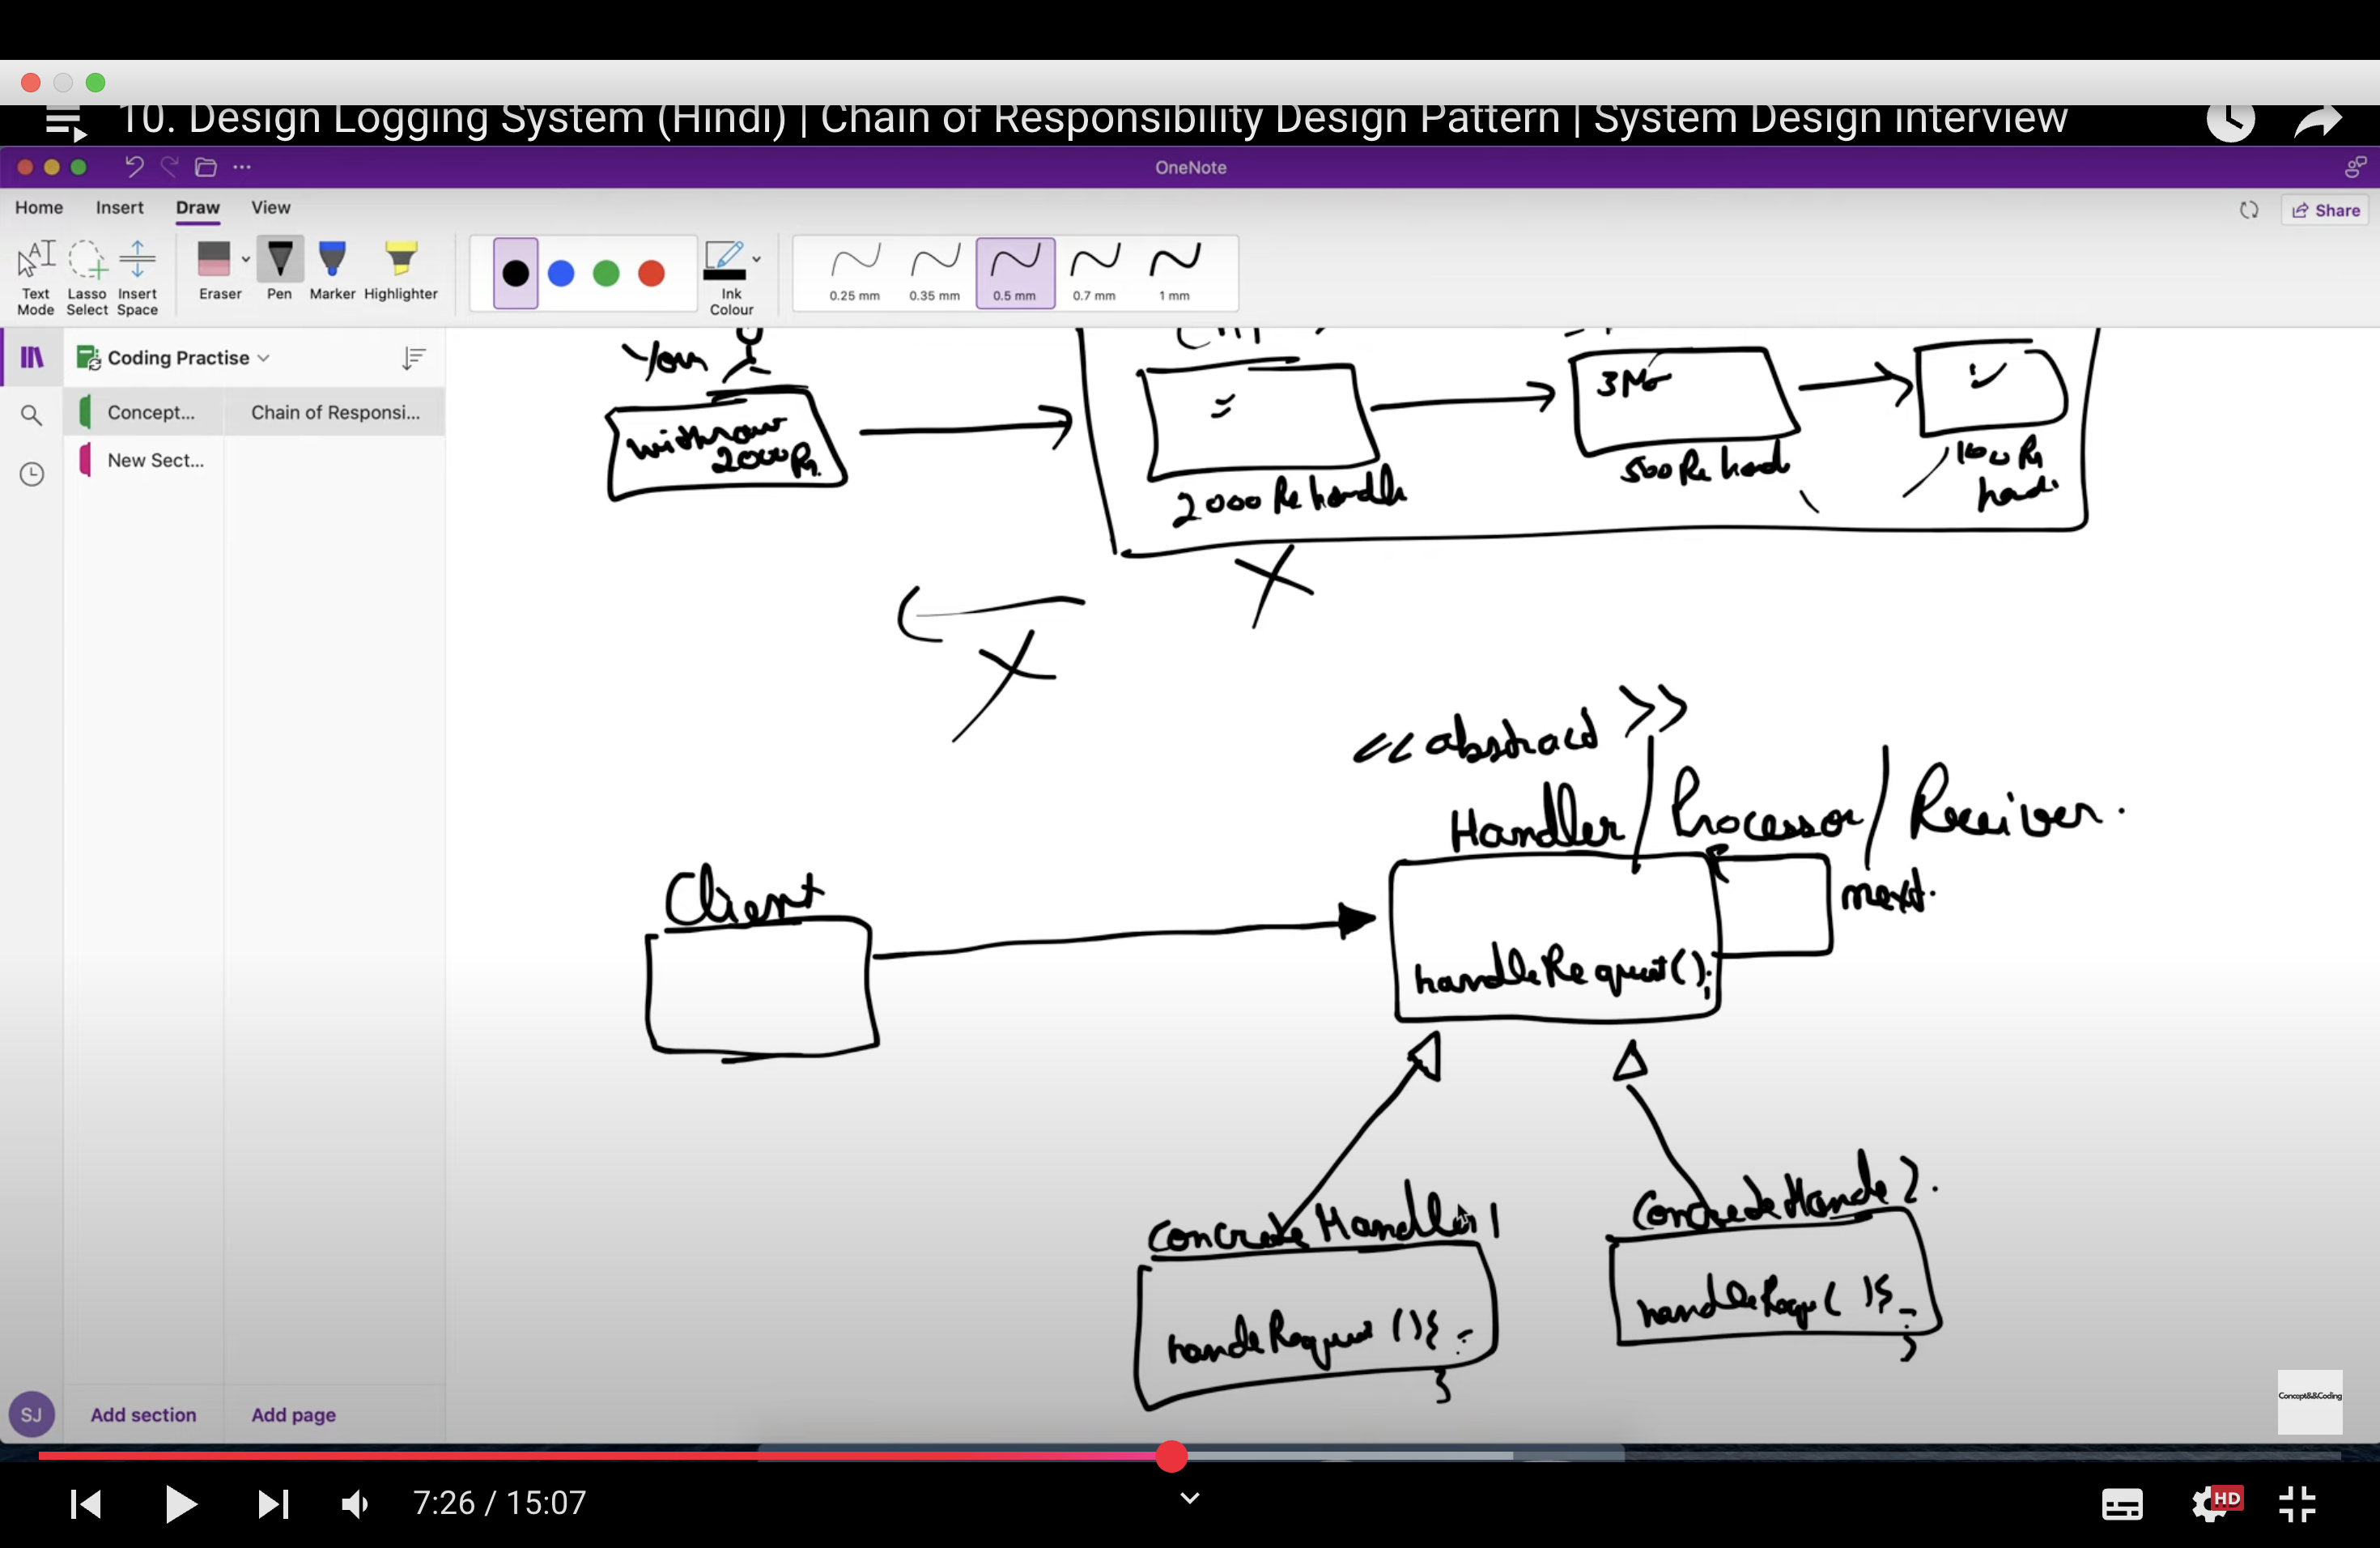 10. Design Logging System (Hindi) | Chain of Responsibility Design Pattern | System Design interview
OneNote
Home Insert Draw View
Share
Text Mode
Lasso Select
Insert Space
Eraser
Pen
Marker
Highlighter
Ink Colour
0.25 mm
0.35 mm
0.5 mm
0.7 mm
1 mm
Coding Practise
Concept...
Chain of Responsi...
New Sect...
You
2000 Rs.
2000 Rs handle
3 No
500 Rs
100 Rs
<<abstract>>
Handler / Processor / Receiver.
next.
Client
handleRequest();
Concrete Handler 1
handleRequest(){
}
Concrete 2.
}
SJ
Add section
Add page
Concept&&Coding
7:26 / 15:07
HD